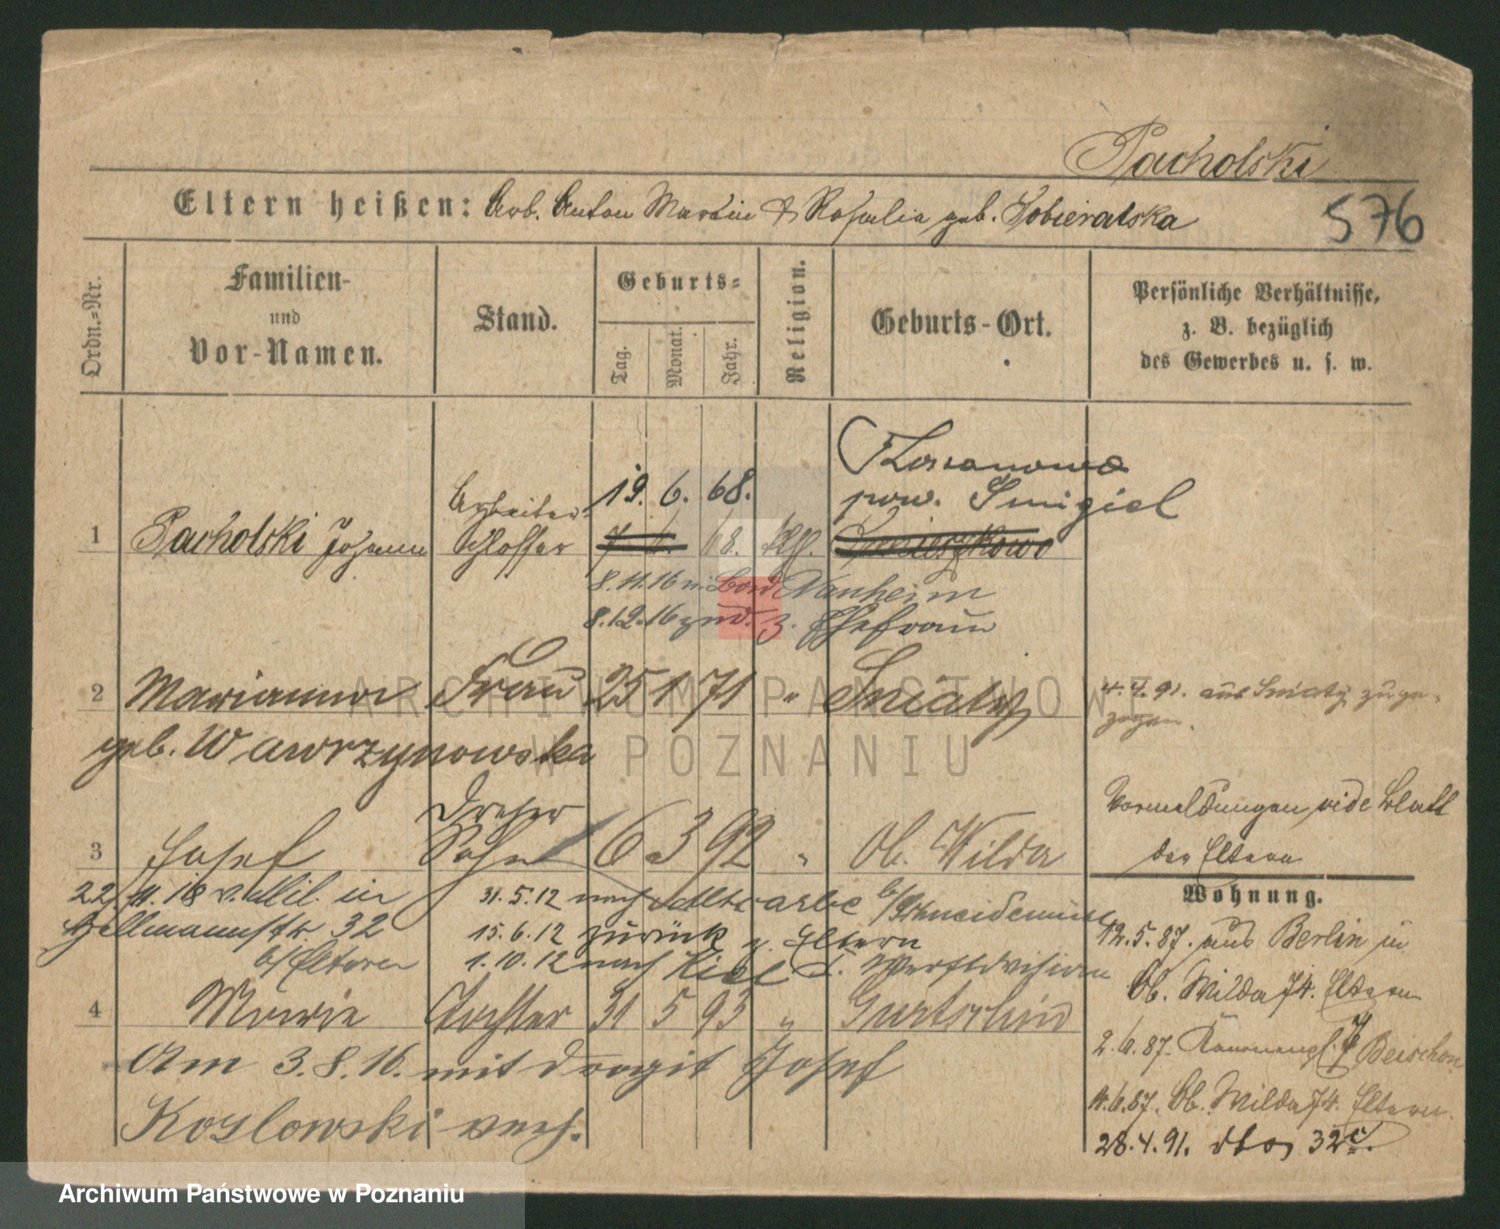 Pacholski
Eltern heißen: Arb. Anton Martin & Rosalia geb. Sobieralska
576
Ordn.-Nr.
Familien-
und
Vor-Namen.
Stand.
Geburts-
Tag.
Monat.
Jahr.
Religion.
Geburts-Ort.
Persönliche Verhältnisse,
z. B. bezüglich
des Gewerbes u. s. w.
1
Pacholski Johann
Arbeiter
Schlosser
19. 6. 68.
68.
pow. Smigiel
8.11.16 n. Bad Nauheim
8.12.16 zurd. z. Ehefrau
2
Marianna
geb. Wawrzynowska
Frau
25 1 71 "
Sniaty
4.4.91. aus Sniaty zuge-
zogen.
Vormeldungen vide Blatt
der Eltern
3
Josef
Dreher
Sohn
6 3 92 "
Ob. Wilda
22/11.18 v. Mil. in
32
b/Eltern
31.5.12 nach b/Schneidemühl
15.6.12 zurück z. Eltern
1.10.12 nach Kiel I. Werftdivision
Wohnung.
12.5.87. aus Berlin in
Ob. Wilda 74. Eltern
2.6.87.
11.6.87. Ob. Wilda 74. Eltern.
28.4.91. dto 32c.
4
Marie
Tochter
31 5 93 "
Gurtschin
Am 3.8.16. mit Josef
Koslowski verh.
ARCHIWUM PAŃSTWOWE
W POZNANIU
Archiwum Państwowe w Poznaniu